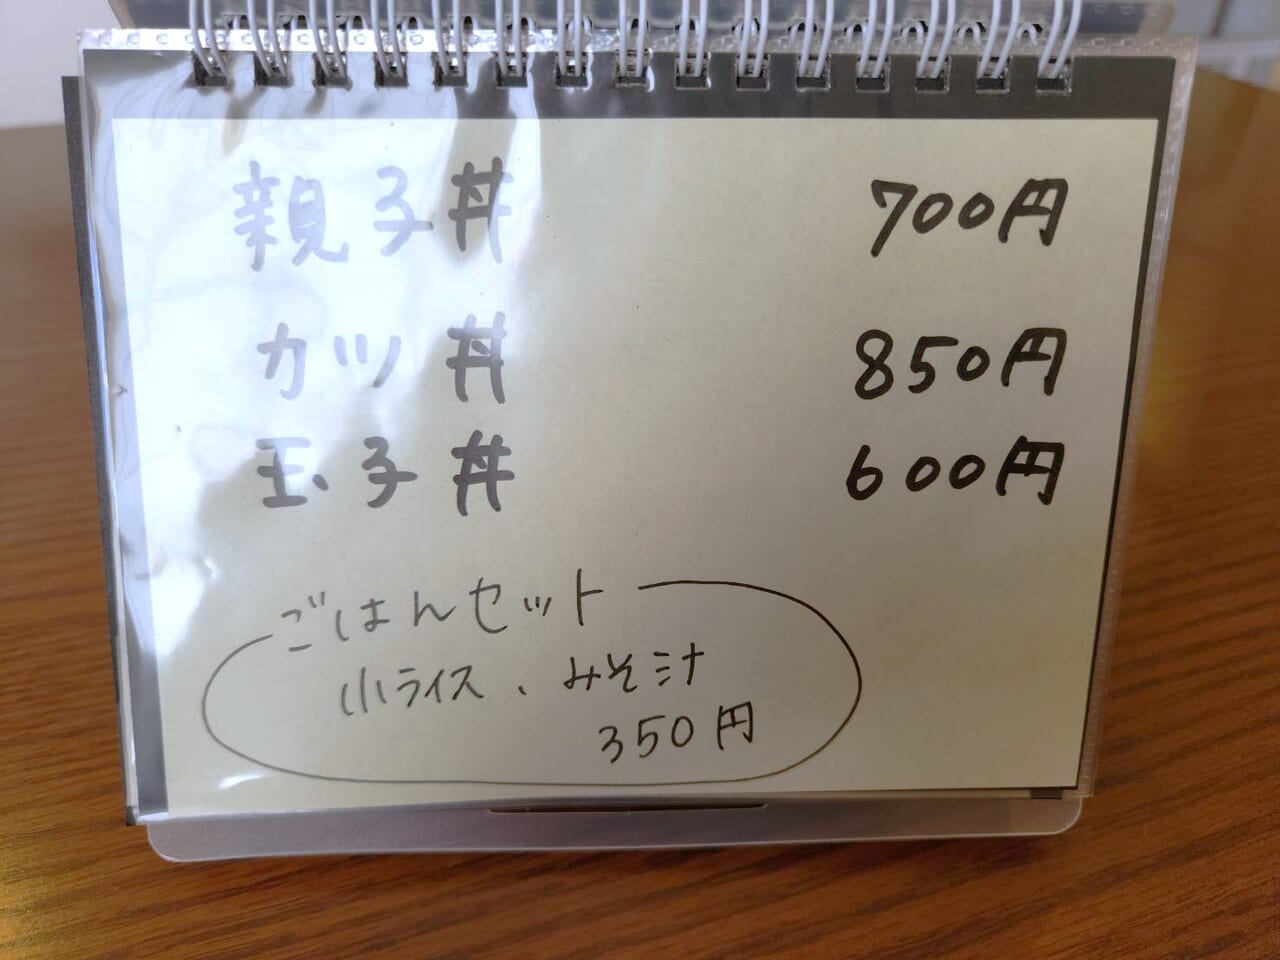 親子丼 700円
カツ丼 850円
玉子丼 600円
ごはんセット
小ライス、みそ汁
350円